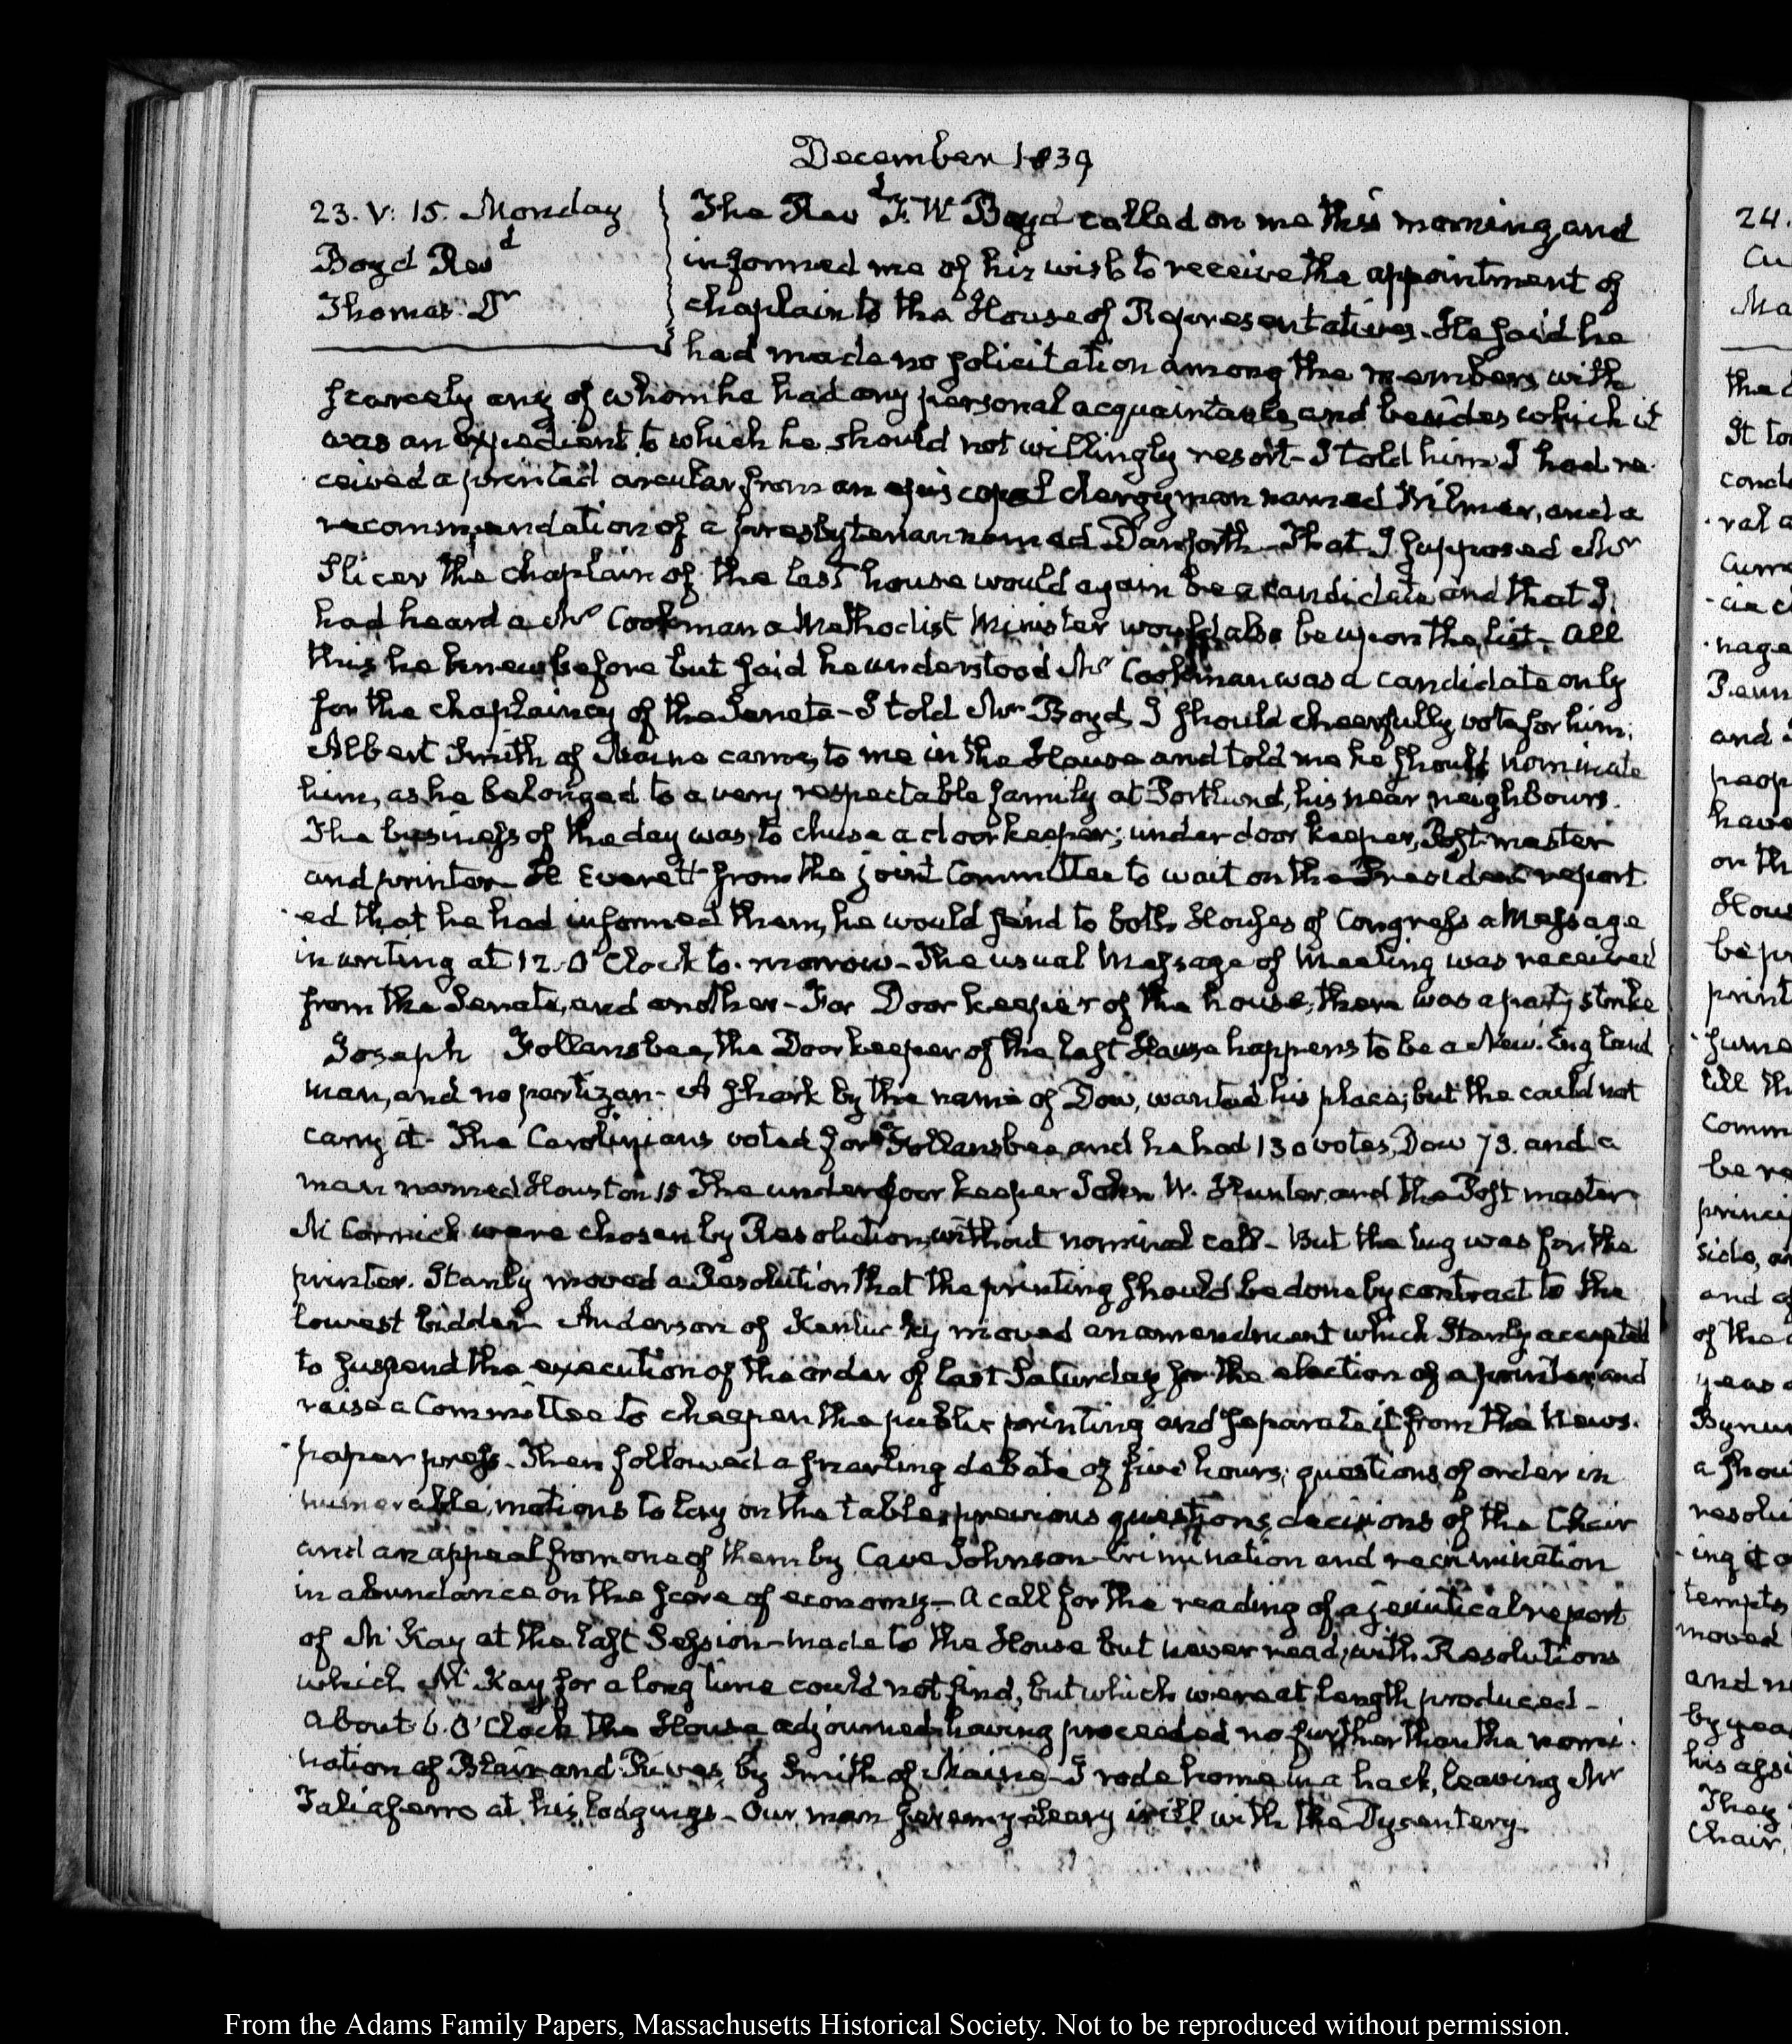 December 1839
23. V: 15. Monday
Boyd Revd
Thomas Dr
The Revd F. W Boyd called on me this morning, and
informed me of his wish to receive the appointment of
chaplain to the House of Representatives. He said he
had made no solicitation among the members with
scarcely any of whom he had any personal acquaintance, and besides which it
was an expedient, to which he should not willingly resort – I told him I had re-
ceived a printed circular from an episcopal clergyman named Wilmer, and a
recommendation of a presbyterian named Danforth – That I supposed Mr
Slicer the chaplain of the last house would again be a candidate and that I
had heard a Mr Cookman a Methodist Minister would also be upon the list – All
this he knew before but said he understood Mr Cookman was a candidate only
for the chaplaincy of the Senate – I told Mr Boyd, I should cheerfully vote for him;
Albert Smith of Maine came, to me in the House and told me he should nominate
him, as he belonged to a very respectable family at Portland, his near neighbours.
The business of the day was, to chuse a door keeper; under door keeper, Post-master
and printer – H Everett from the joint Committee to wait on the President report-
ed that he had informed them, he would send to both Houses of Congress a Message
in writing at 12. O'Clock to-morrow – The usual Message of Meeting was received
from the Senate, and another – For Door keeper of the house, there was a party strike
Joseph Follansbee, the Door keeper of the last House happens to be a New-England
man, and no partizan – A shark by the name of Dow, wanted his place; but the could not
carry it – The Carolinians voted for Follansbee, and he had 130 votes, Dow 73. and a
man named Houston 15 The under door keeper John W. Hunter, and the Post master
McCormick were chosen by Resolution, without nominal call – But the tug was for the
printer. Stanly moved a Resolution that the printing should be done by contract to the
lowest bidder – Anderson of Kentucky moved an amendment which Stanly accepted
to suspend the execution of the order of last Saturday for the election of a printer, and
raise a Committee to cheapen the public printing and separate it from the News-
paper press – Then followed a snarling debate of five hours; questions of order in
numerable, motions to lay on the table, previous questions, decisions of the Chair
and an appeal from one of them by Cave Johnson – crimination and recrimination
in abundance on the score of economy – A call for the reading of a jesuitical report
of McKay at the last Session – made to the House but never read, with Resolutions
which McKay for a long time could not find, but which were at length produced –
About 6. O'Clock the House adjourned having proceeded no further than the nomi-
nation of Blair and Rives, by Smith of Maine – I rode home in a hack, leaving Mr
Taliaferro at his lodgings – Our man Jeremy Leary is ill with the Dysentery.
24.
Cu
Ma
the
St to
conde
ral a
Curre
nage
and
peop
have
on th
Hous
be pr
print
till th
Comm
be re
princi
side, a
and
of the
yeas
Bynu
a shou
resolu
ing
tempts
moved
and
by yea
his
They
Chair,
From the Adams Family Papers, Massachusetts Historical Society. Not to be reproduced without permission.